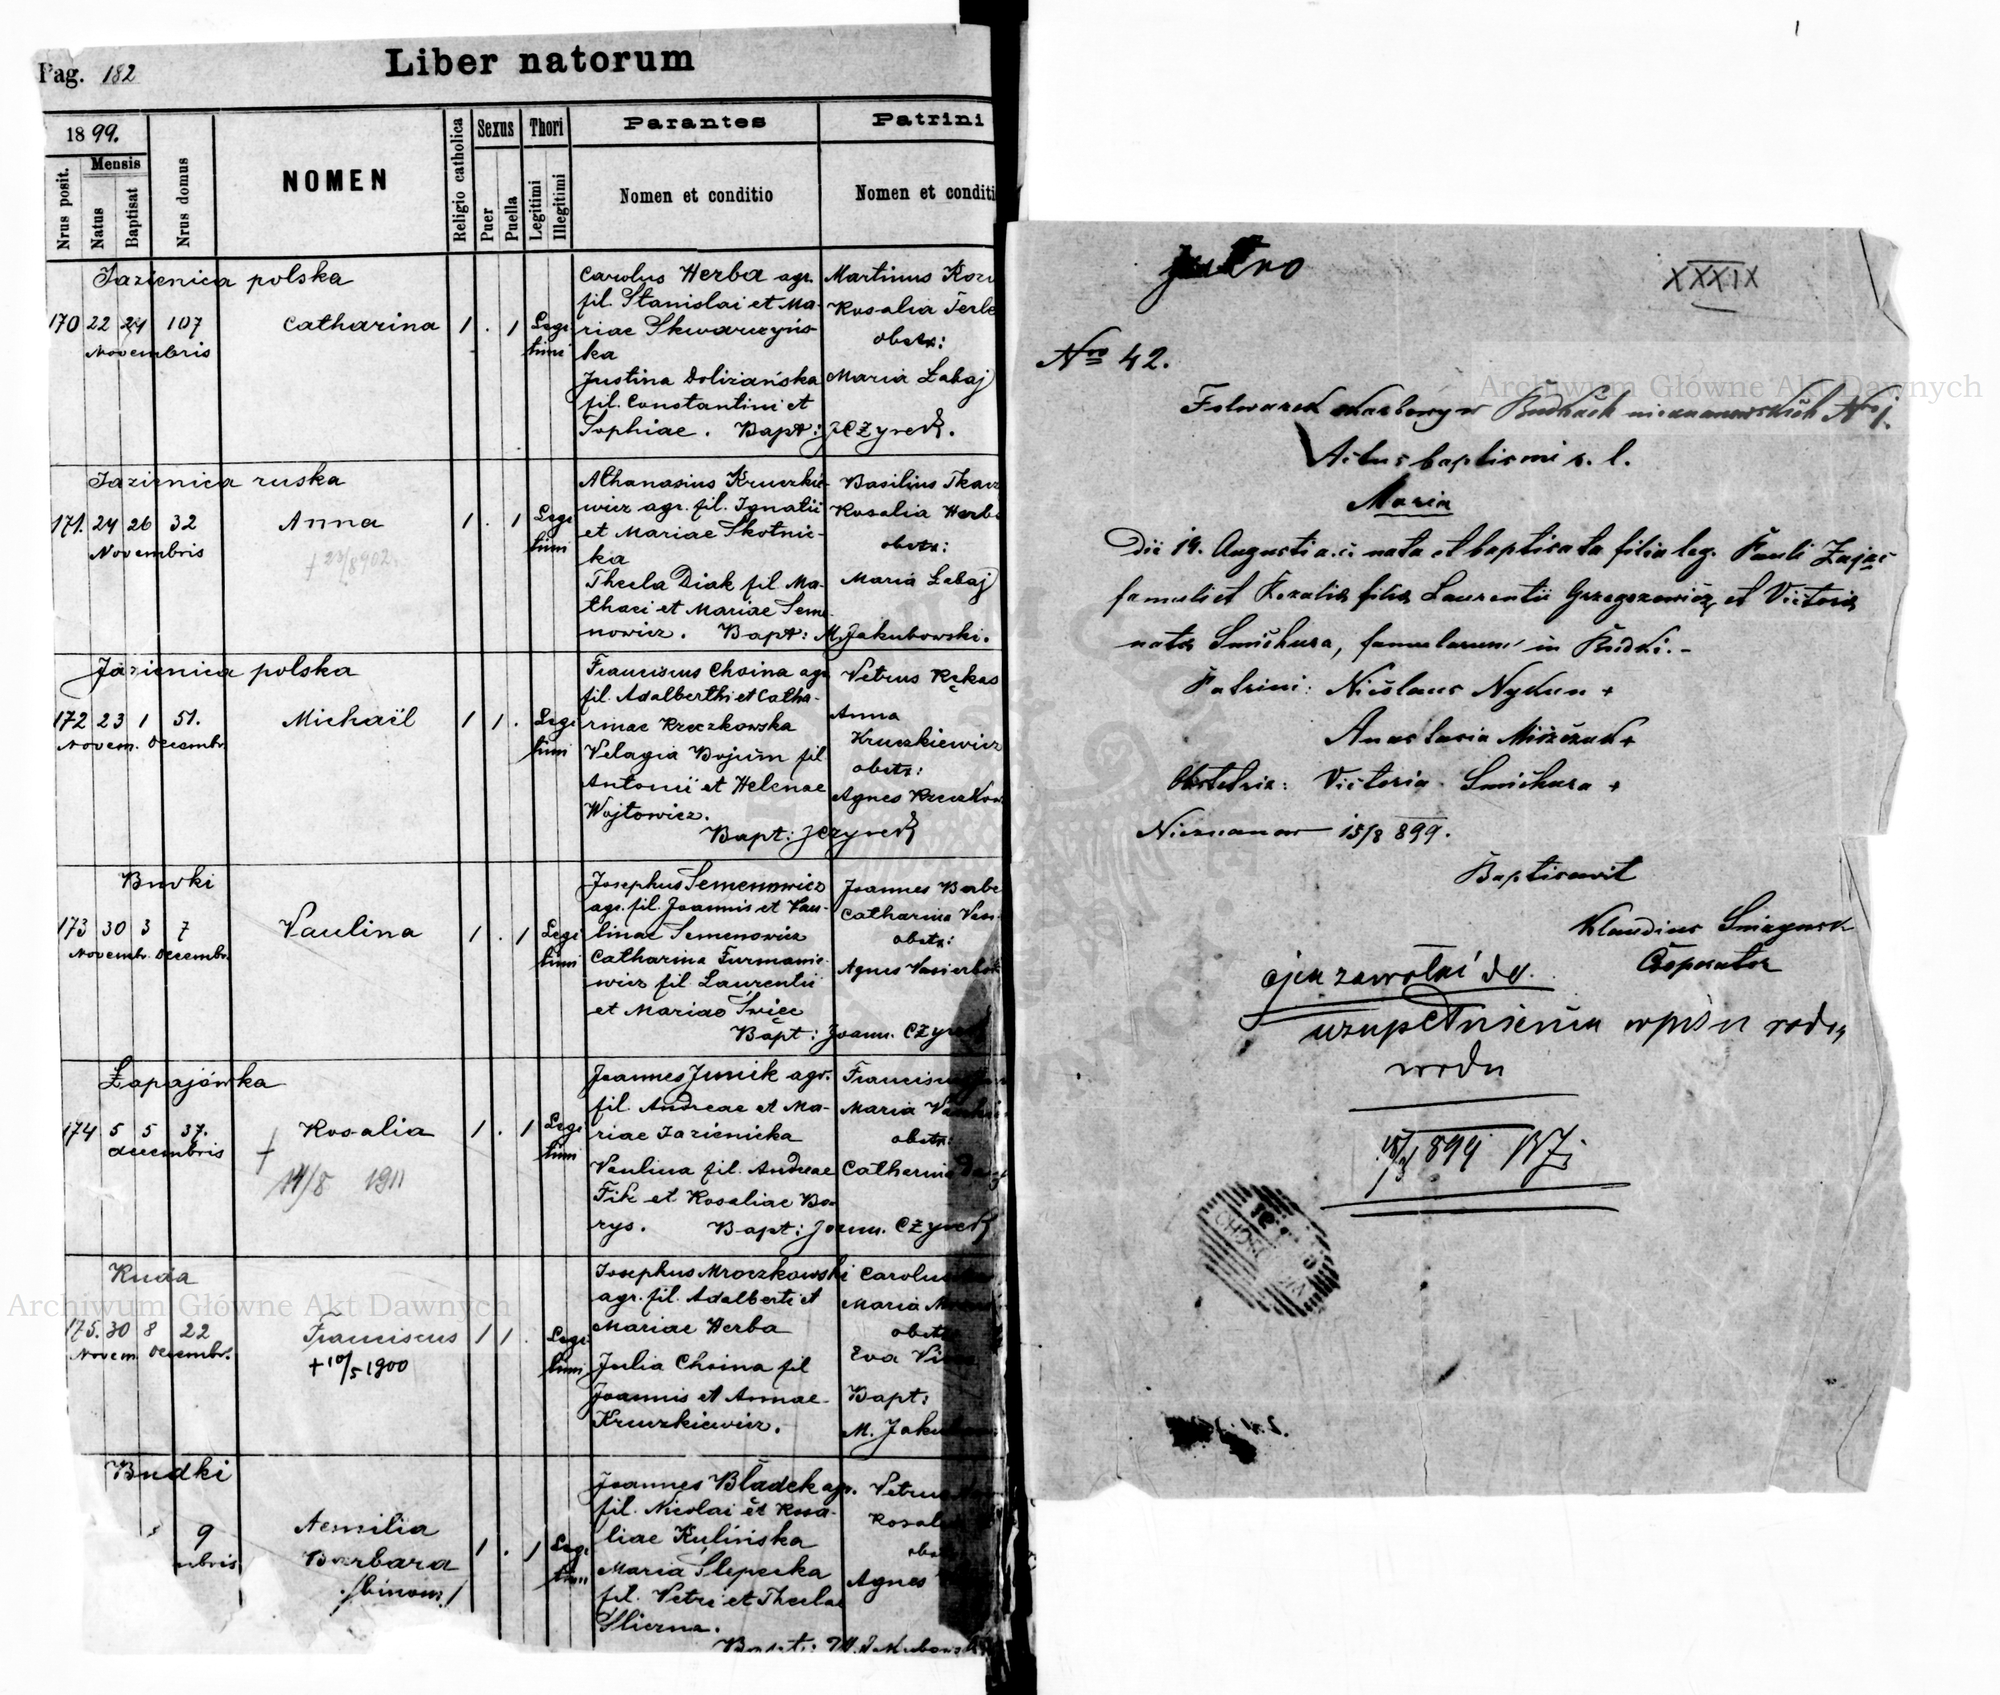 Pag. 182
Liber natorum
1899.
Nrus posit.
Mensis
Natus
Baptisat
Nrus domus
NOMEN
Religio catholica
Sexus
Puer
Puella
Thori
Legitimi
Illegitimi
Parentes
Nomen et conditio
Patrini
Nomen et conditi
Jazienica polska
170 22 24 107
Novembris
Catharina
1 . 1
Legi
timi
Carolus Herba agr.
fil. Stanislai et Ma-
riae Skwarczyńs-
ka
Justina Doliżańska
fil. Constantini et
Sophiae. Bapt: JCzyrek.
Martinus
Rosalia
obstr:
Maria Łabaj
Jazienica ruska
171. 24 26 32
Novembris
Anna
+ 23/8 902.
1 . 1
Legi
timi
Athanasius Kruczkie-
wicz agr. fil. Ignatii
et Mariae Skotnic-
ka
Thecla Diak fil. Ma-
thaei et Mariae Seme-
nowicz. Bapt: M. Jakubowski.
Basilius Tkacz
Rosalia Herba
obstr:
Maria Łabaj
Jazienica polska
172 23 1 51.
Novem. Decembr.
Michaël
1 1 .
Legi
timi
Franciscus Choina agr.
fil. Adalberthi et Catha-
rinae Kreczkowska
Pelagia Bojum fil.
Antonii et Helenae
Wojtowicz.
Bapt: JCzyrek
Petrus Rękas
Anna
Kruczkiewicz
obstr:
Agnes
Budki
173 30 3 7
Novembr. Decembr.
Paulina
1 . 1
Legi
timi
Josephus Semenowicz
agr. fil. Joannis et Pau-
linae Semenowicz
Catharina Furmanie-
wicz fil. Laurentii
et Mariae Świec
Bapt: Joann. Czyrek
Joannes
Catharina
obstr:
Agnes
Łapajówka
174 5 5 37.
decembris
Rosalia
+ 14/8 1911
1 . 1
Legi
timi
Joannes Junik agr.
fil. Andreae et Ma-
riae Jazienicka
Paulina fil. Andreae
Fik et Rosaliae Bo-
rys. Bapt: Joann. Czyrek
Maria
obstr:
Ruda
175. 30 8 22
Novem. Decembr.
Franciscus
+ 10/5 1900
1 1 .
Legi
timi
Josephus Mroczkowski
agr. fil. Adalberti et
Mariae Herba
Julia Choina fil
Joannis et Annae
Kruczkiewicz.
Maria
Eva
Bapt:
M.
Budki
9
mbris
Aemilia
Barbara
/binom./
1 . 1
Legi
timi
Joannes Bładek agr.
fil. Nicolai et Rosa-
liae Kulińska
Maria Ślepecka
fil. Petri et Theclae
Slicrna.
Bapt: M. Jakubowski
Agnes
Jutro
XXXIX
Nro 42.
Folwarek skarbowy w Budkach nieznanowskich Nro 1.
Actus baptismi r. l.
Maria
Die 14. Augusti a.c. nata et baptisata filia leg. Pauli Zając
famuli et Rozalia filia Laurentii Grzegorzewicz et Victoria
nata Smichura, famulorum in Budki.-
Patrini: Nicolaus Nykun +
Anastasia +
Obstetrix: Victoria Smichura +
Nieznanow 15/8 899.
Baptisavit
Klaudius
Cooperator
ojca zawołać do
uzupełnienia wpisu rodo
wodu
899
Archiwum Główne Akt Dawnych
Archiwum Główne Akt Dawnych